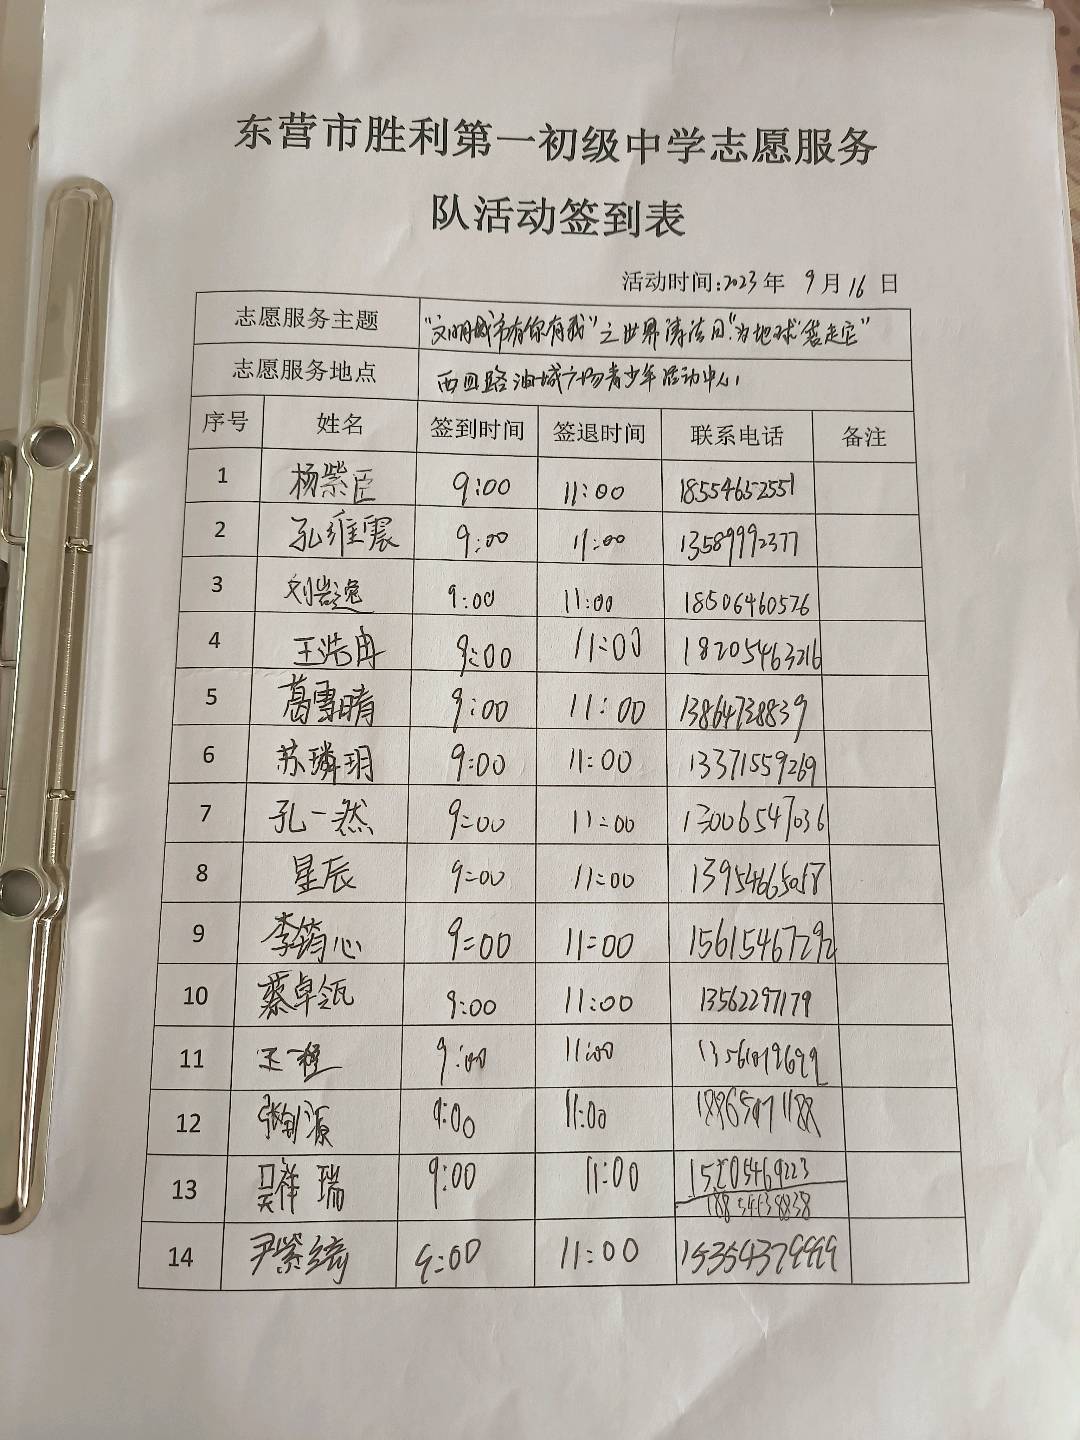 东营市胜利第一初级中学志愿服务
队活动签到表
活动时间:2023年 9月16日
志愿服务主题 "文明城市有你有我"之世界清洁日"为地球 走它"
志愿服务地点 西四路油城广场青少年活动中心
序号 姓名 签到时间 签退时间 联系电话 备注
1 杨紫臣 9:00 11:00 18554652551
2 孔维震 9:00 11:00 13589992377
3 刘岩逸 9:00 11:00 18506460576
4 王浩冉 9:00 11:00 18205463216
5 葛雪晴 9:00 11:00 13864738839
6 苏璘玥 9:00 11:00 13371559269
7 孔一然 9:00 11:00 13006547036
8 星辰 9:00 11:00 13954665058
9 李筠心 9:00 11:00 15615467292
10 蔡卓瓴 9:00 11:00 13562297179
11 王一程 9:00 11:00
12 源 9:00 11:00
13 吴祥瑞 9:00 11:00 15205469223
14 尹紫绮 9:00 11:00 15354379999